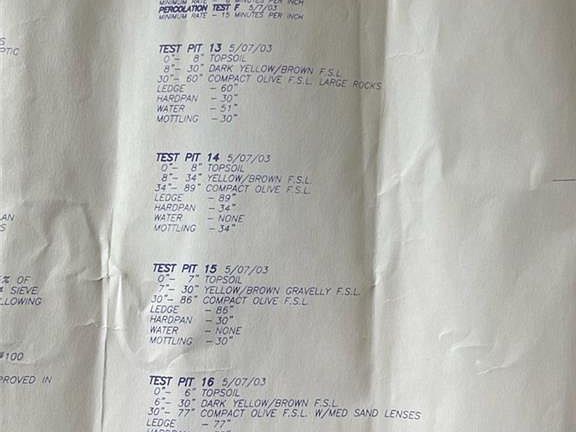 MINIMUM RATE - 6 MINUTES PER INCH
PERCOLATION TEST F 5/7/03
MINIMUM RATE - 15 MINUTES PER INCH
TEST PIT 13 5/07/03
0"- 8" TOPSOIL
8"- 30" DARK YELLOW/BROWN F.S.L.
30"- 60" COMPACT OLIVE F.S.L. LARGE ROCKS
LEDGE - 60"
HARDPAN - 30"
WATER - 51"
MOTTLING - 30"
TEST PIT 14 5/07/03
0"- 8" TOPSOIL
8"- 34" YELLOW/BROWN F.S.L.
34"- 89" COMPACT OLIVE F.S.L.
LEDGE - 89"
HARDPAN - 34"
WATER - NONE
MOTTLING - 34"
TEST PIT 15 5/07/03
0"- 7" TOPSOIL
7"- 30" YELLOW/BROWN GRAVELLY F.S.L.
30"- 86" COMPACT OLIVE F.S.L.
LEDGE - 86"
HARDPAN - 30"
WATER - NONE
MOTTLING - 30"
TEST PIT 16 5/07/03
0"- 6" TOPSOIL
6"- 30" DARK YELLOW/BROWN F.S.L.
30"- 77" COMPACT OLIVE F.S.L. W/MED SAND LENSES
LEDGE - 77"
S
PTIC
LAN
S
% OF
SIEVE
LLOWING
#100
PROVED IN